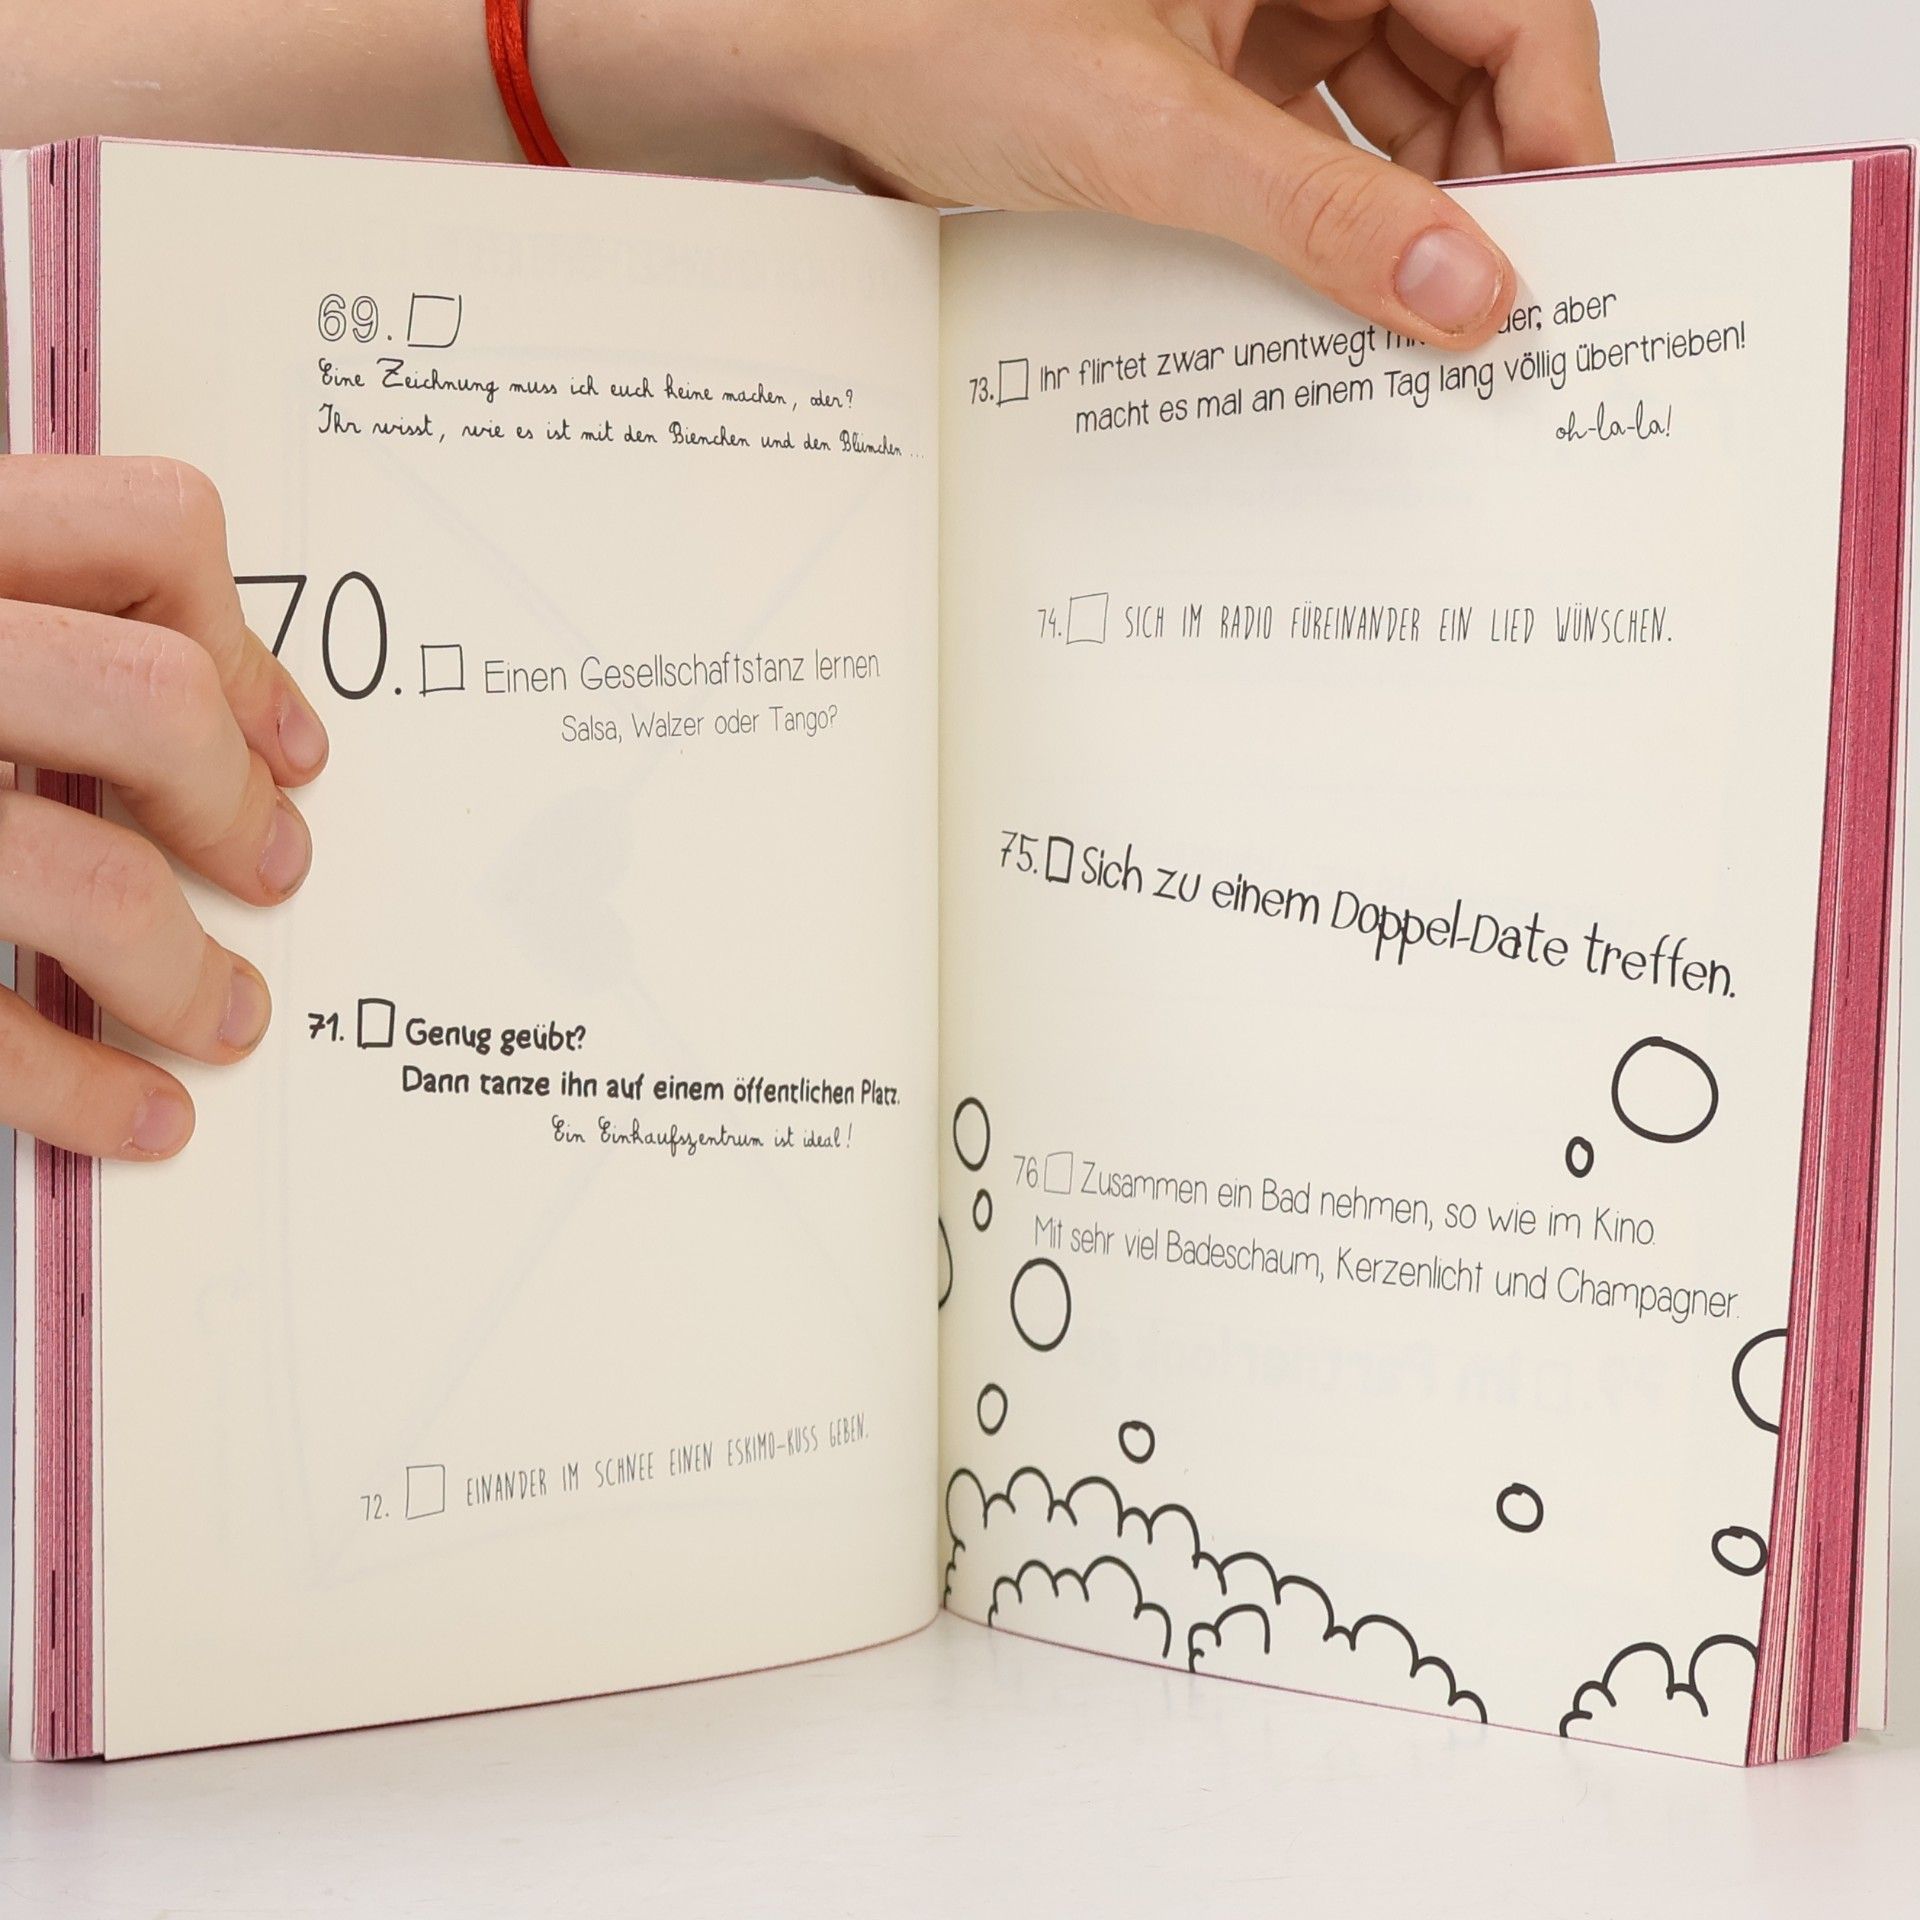 69.
Eine Zeichnung muss ich euch keine machen, oder?
Ihr wisst, wie es ist mit den Bienchen und den Blümchen ...
70. Einen Gesellschaftstanz lernen
Salsa, Walzer oder Tango?
71. Genug geübt?
Dann tanze ihn auf einem öffentlichen Platz.
Ein Einkaufszentrum ist ideal!
72. EINANDER IM SCHNEE EINEN ESKIMO-KUSS GEBEN.
73. Ihr flirtet zwar unentwegt aber
macht es mal an einem Tag lang völlig übertrieben!
oh-la-la!
74. SICH IM RADIO FÜREINANDER EIN LIED WÜNSCHEN.
75. Sich zu einem Doppel-Date treffen.
76 Zusammen ein Bad nehmen, so wie im Kino.
Mit sehr viel Badeschaum, Kerzenlicht und Champagner.